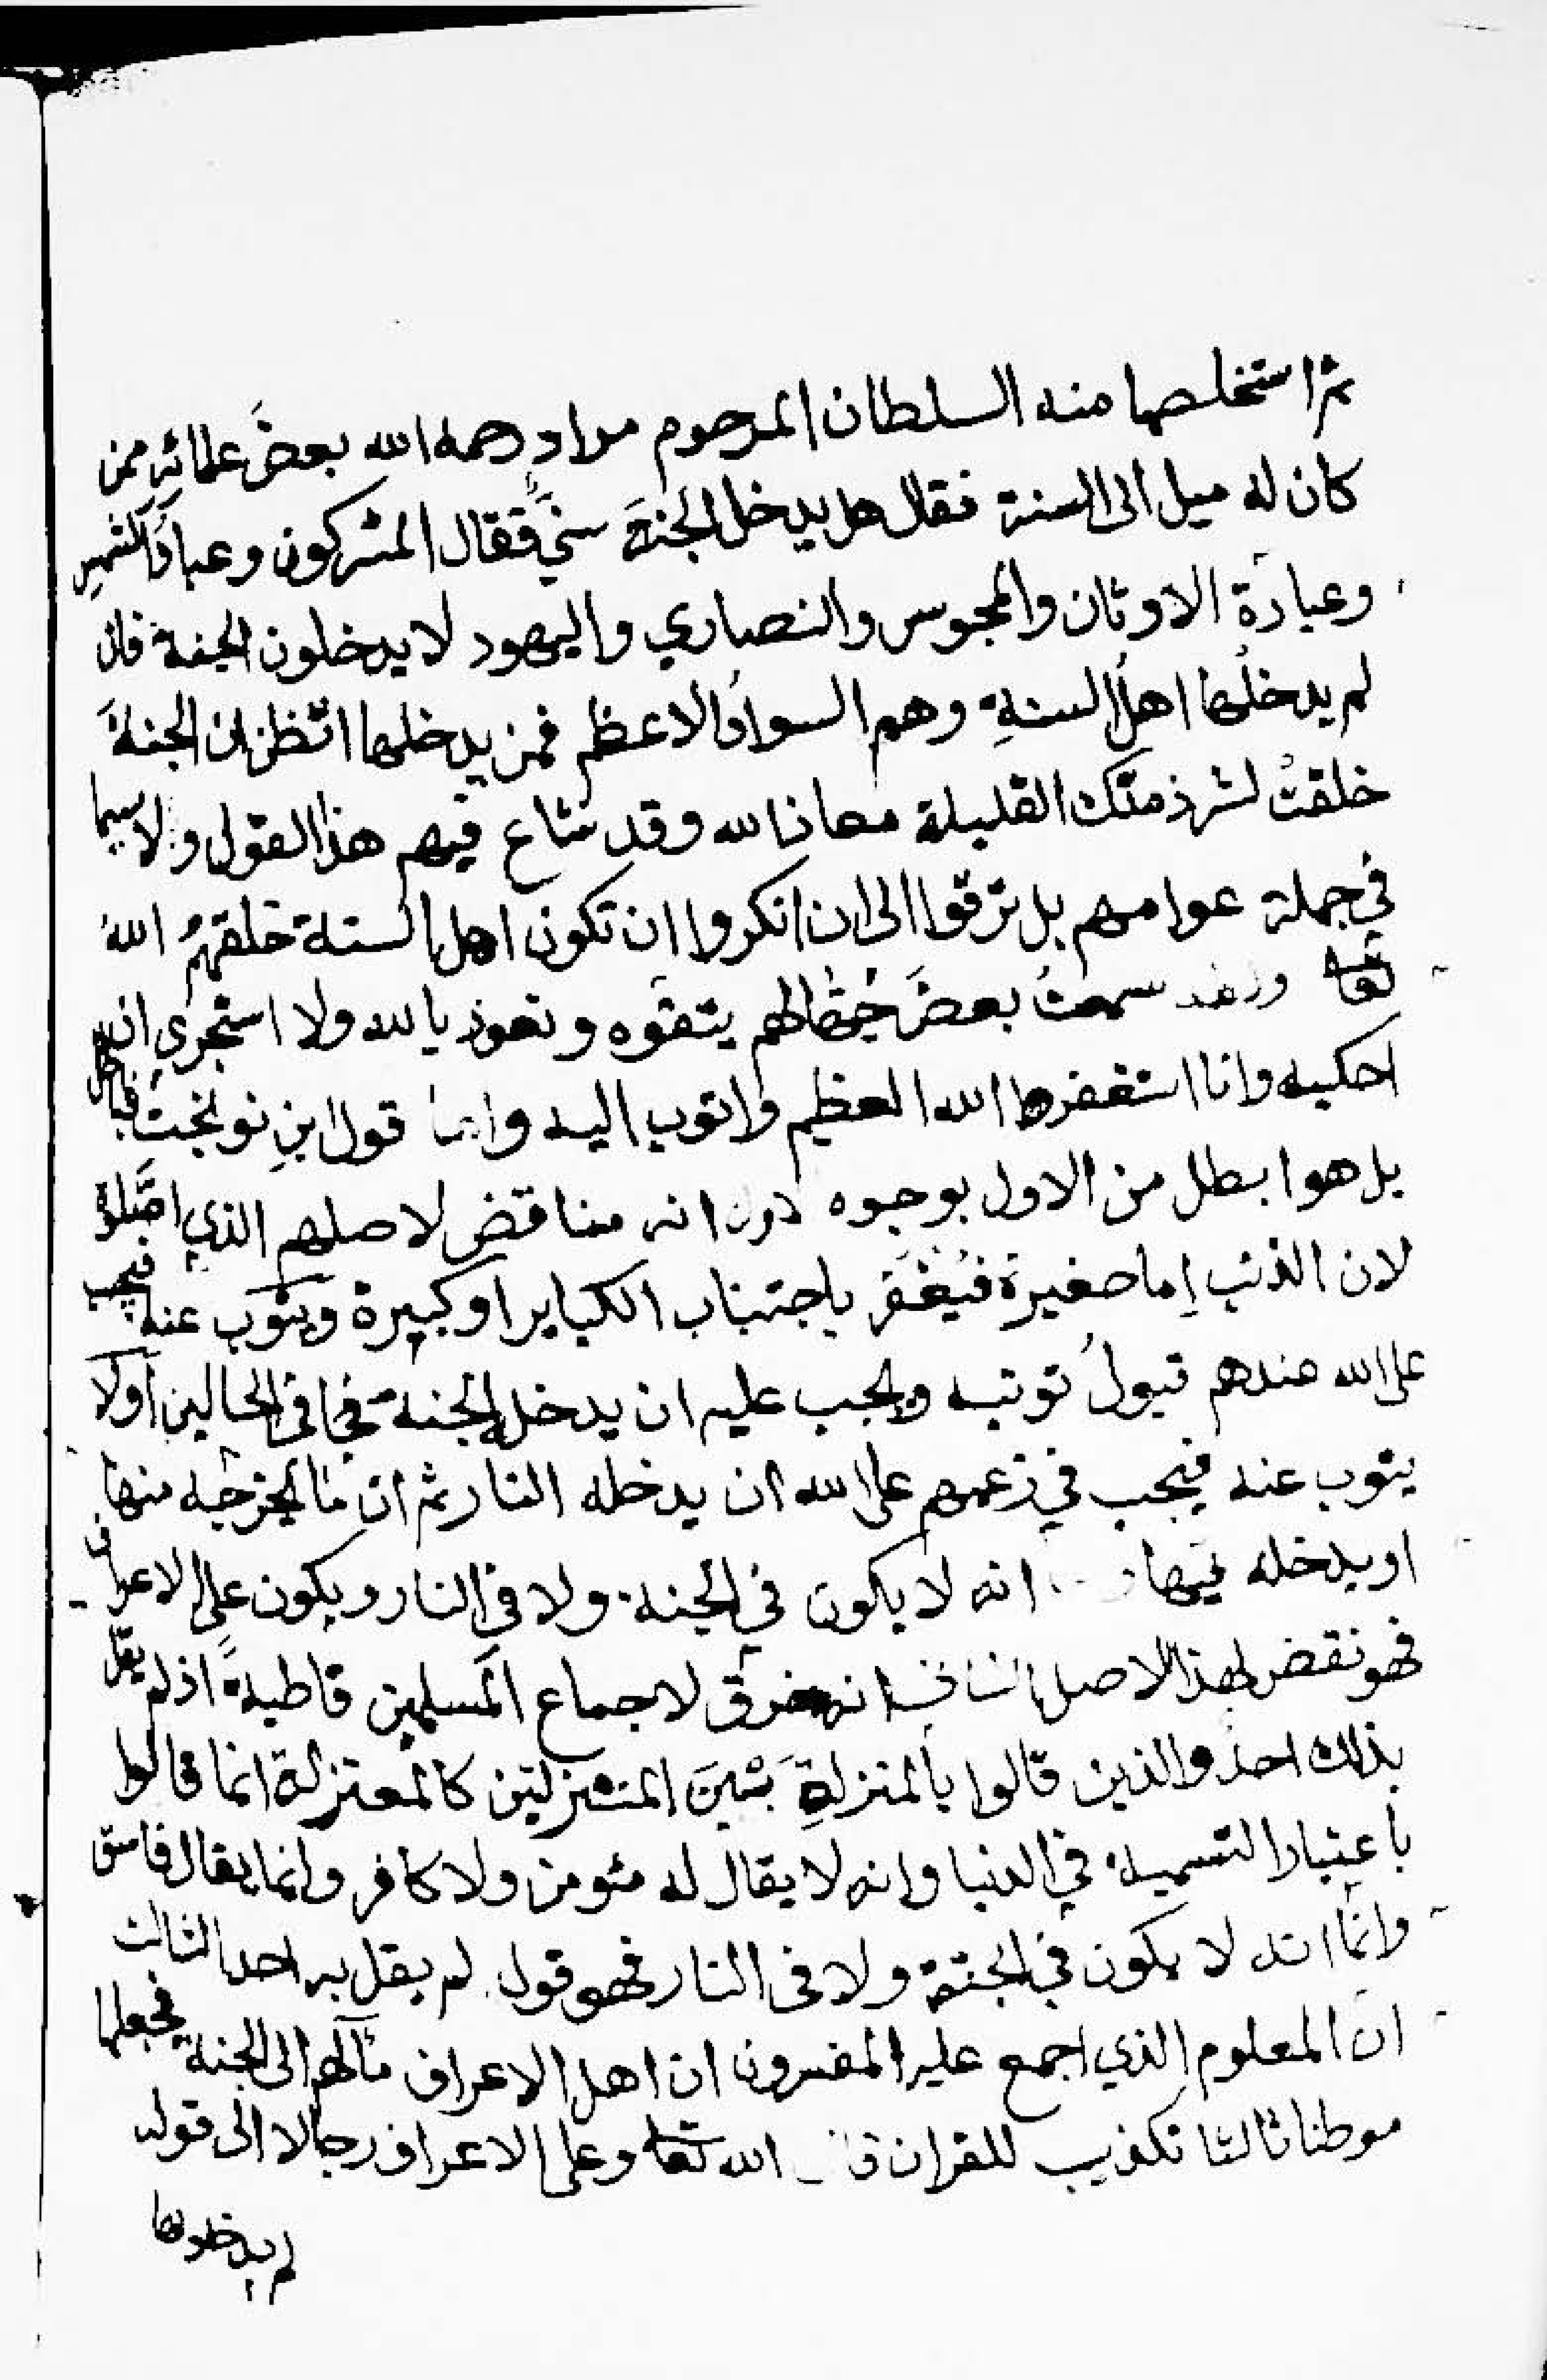 ثم استخلصها منه السلطان المرحوم مراد رحمه الله بعضَ علمائه ممن
كان له ميل الى السنة فقال هل يدخل الجنةَ سنيٌّ فقال المشركون وعبادُ الشمس
وعبادة الاوثان والمجوس والنصارى واليهود لا يدخلون الجنة فان
لم يدخلها اهلُ السنةِ وهم السوادُ الاعظم فمن يدخلها اتظن ان الجنةَ
خلقتْ لشرذمتك القليلة معاذ الله وقد شاع فيهم هذا القول ولا سيما
في جملة عوامهم بل ترقوا الى ان انكروا ان تكون اهل السنة خلقهمُ اللهُ
تعا ولقد سمعتُ بعضَ جهالهم يتفوه ونعوذ بالله ولا استجرى ان
احكيه وانا استغفر الله العظيم واتوب اليه واما قول ابنِ نوبخت فباطل
بل هو ابطل من الاول بوجوه انه مناقض لاصلهم الذي اصَّلوه
لان الذنب إما صغيرة فيُغْفَر باجتناب الكباير او كبيرة ويتوب عنه فيجب
على الله عندهم قبولُ توبته ويجب عليه ان يدخل الجنة في الحالين أولا
يتوب عنه فيجب في زعمهم على الله ان يدخله النار ثم ان يخرجه منها
او يدخله فيها انه لا يكون في الجنة ولا في النار ويكون على الاعراف
فهو نقض لهذا الاصل الثاني انه خرق لاجماع المسلمين قاطبةً اذ لم يقل
بذلك احدٌ والذين قالوا بالمنزلةِ بَيْنَ المنزلتين كالمعتزلة انما قالوا
باعتبار التسمية في الدنيا وانه لا يقال له مؤمن ولا كافر وانما يقال فاسق
وانما انه لا يكون في الجنة ولا في النار فهو قول لم يقل به احد الثالث
ان المعلوم الذي اجمع عليه المفسرون ان اهل الاعراف مآلهم الى الجنة فجعلها
موطنا ثالثا تكذيب للقران قال الله تعا وعلى الاعراف رجالا الى قوله
لم يدخلوها